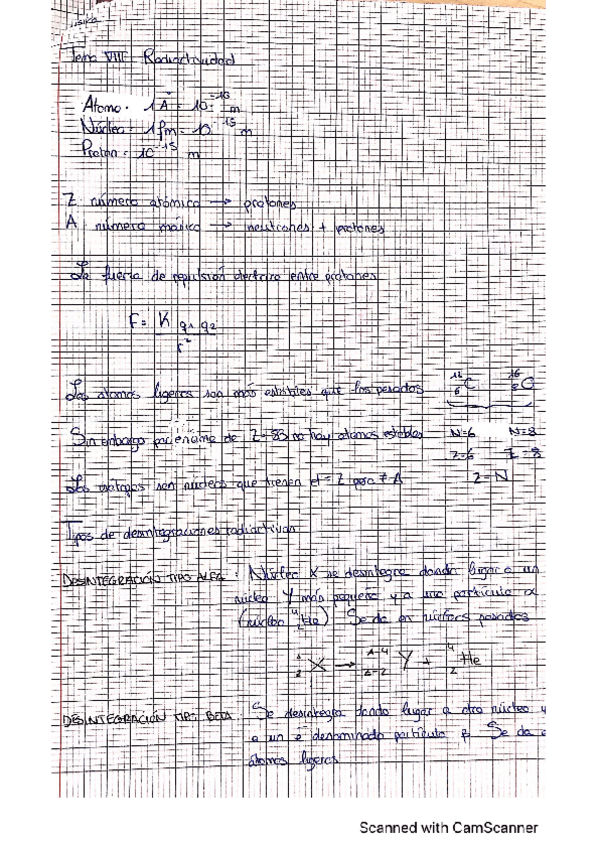 Física
Tema VIII: Radiactividad
Átomo = 1 Å = 10^-10 m
Núcleo = 1 fm = 10^-15 m
Protón = 10^-15 m
Z número atómico → protones
A número másico → neutrones + protones
La fuerza de repulsión eléctrica entre protones
F = K q1 q2 / r^2
Los átomos ligeros son más estables que los pesados 12 6 C 16 8 O
Sin embargo por encima de Z=83 no hay átomos estables N=6 N=8
Z=6 Z=8
Los isótopos son núcleos que tienen el = Z pero ≠ A Z=N
Tipos de desintegraciones radiactivas
DESINTEGRACIÓN TIPO ALFA: Núcleo X se desintegra dando lugar a un
núcleo Y más pequeño y a una partícula α
(núcleo 4 2 He) Se da en núcleos pesados
A Z X → A-4 Z-2 Y + 4 2 He
DESINTEGRACIÓN TIPO BETA: Se desintegra dando lugar a otro núcleo y
a un e denominado partícula β Se da e
átomos ligeros
Scanned with CamScanner